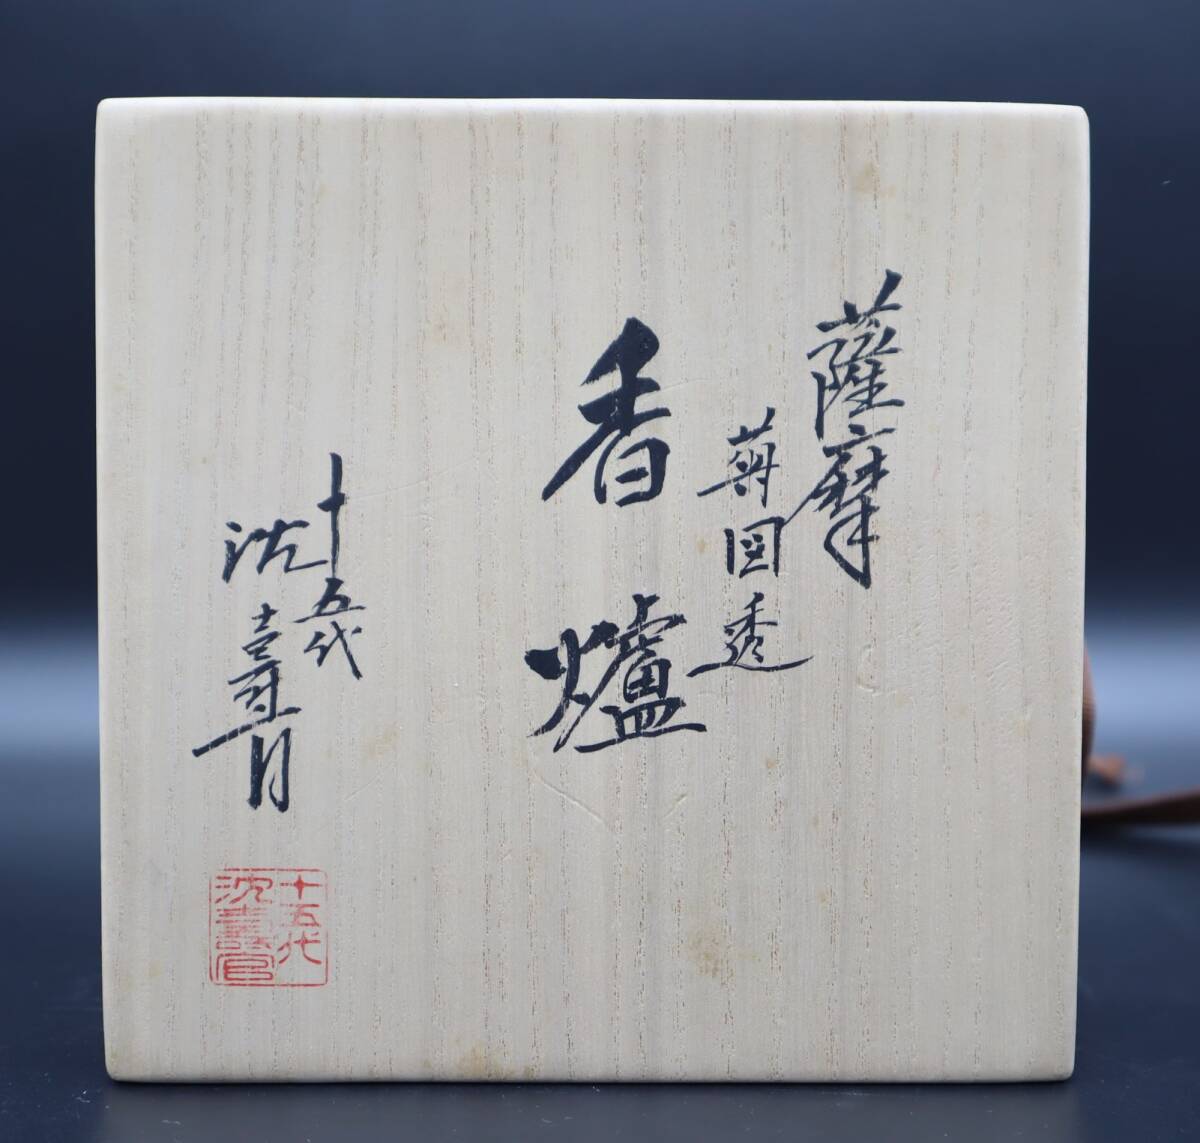 薩摩
菊図透
香爐
十五代
沈壽官
十五代
沈壽官